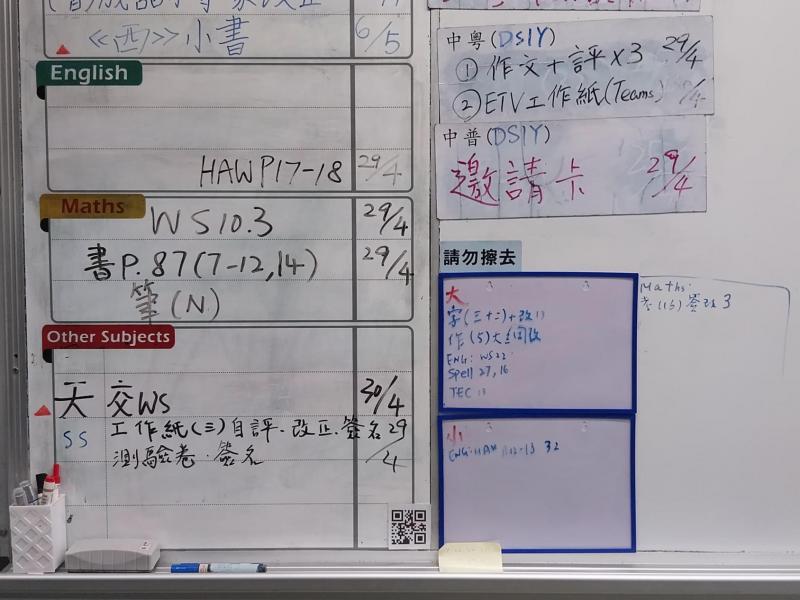 《西》小書 6/5
English
HAW P17-18 29/4
Maths
WS10.3 29/4
書P.87(7-12,14) 29/4
筆(N)
Other Subjects
天 交WS 30/4
SS 工作紙(三)自評.改正.簽名 29/4
測驗卷.簽名
中粵(DSIY)
①作文+評x3 29/4
②ETV工作紙(Teams)
中普(DSIY)
邀請卡 29/4
請勿擦去
大
字(三十二)+改
作(5)
ENG: WS22
Spell 27, 16
TEC
小
32
Maths: